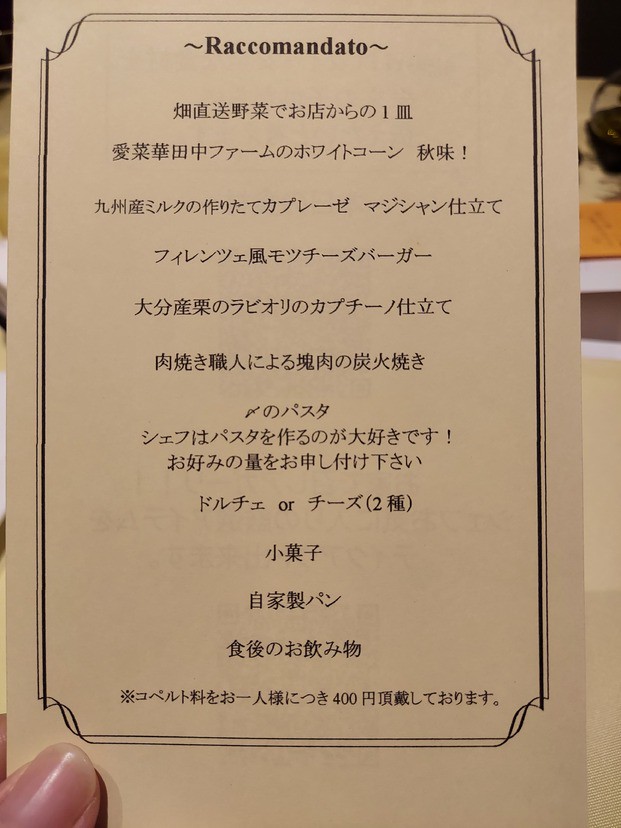 ～Raccomandato～
畑直送野菜でお店からの1皿
愛菜華田中ファームのホワイトコーン 秋味！
九州産ミルクの作りたてカプレーゼ マジシャン仕立て
フィレンツェ風モツチーズバーガー
大分産栗のラビオリのカプチーノ仕立て
肉焼き職人による塊肉の炭火焼き
〆のパスタ
シェフはパスタを作るのが大好きです！
お好みの量をお申し付け下さい
ドルチェ or チーズ(2種)
小菓子
自家製パン
食後のお飲み物
※コペルト料をお一人様につき400円頂戴しております。